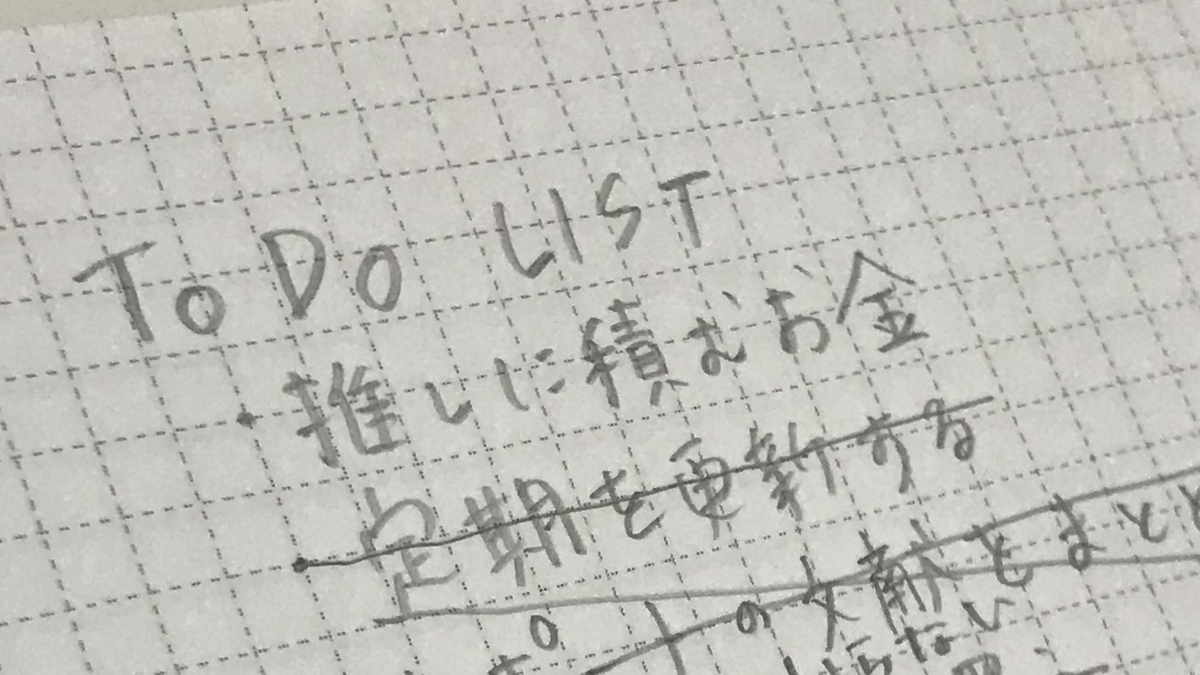 To Do LIST
・推しに積むお金
・定期を更新する
の文献をまと